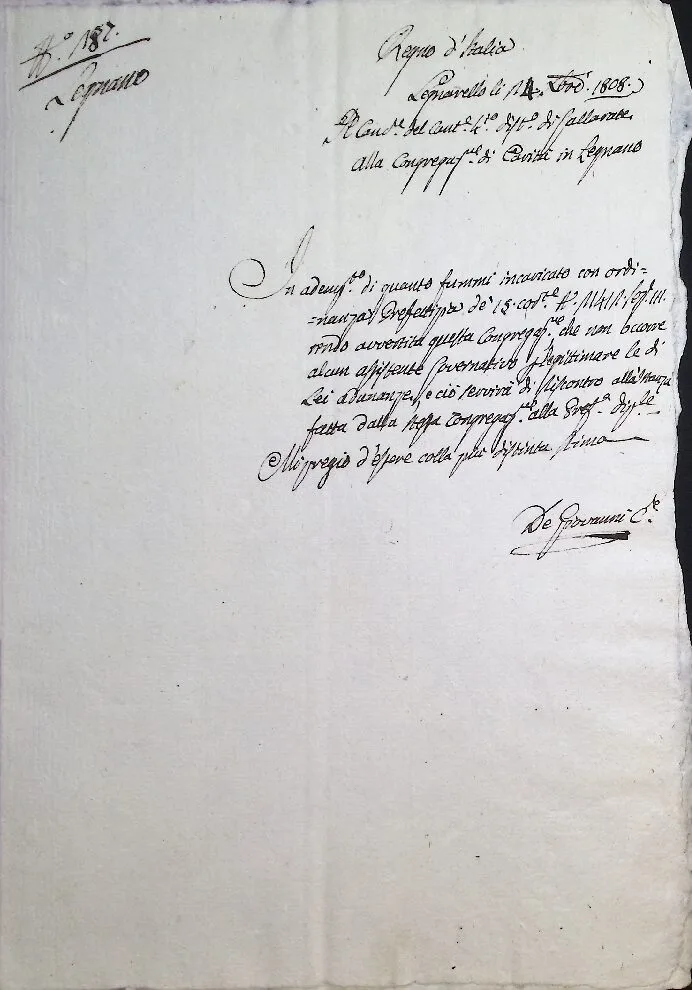 N.º 187.
Legnano
Regno d'Italia
Legnarello li 14. 1808.
Il Canc.e del Cant.e 4.to dist.o di Gallarate
alla Congregaz.ne di Carità in Legnano
In ademp.to di quanto fummi incaricato con ordi=
=nanza Prefettizia de' 15. cor.te N.º 11411. Sez. III.
rendo avvertita questa Congregaz.ne che non occorre
alcun assistente Governativo p legittimare le di
Lei adunanze, e ciò servirà di riscontro all'istanza
fatta dalla stessa Congregaz.ne alla Pref.a
Mi pregio d'essere colla più distinta stima
De Giovanni C.e